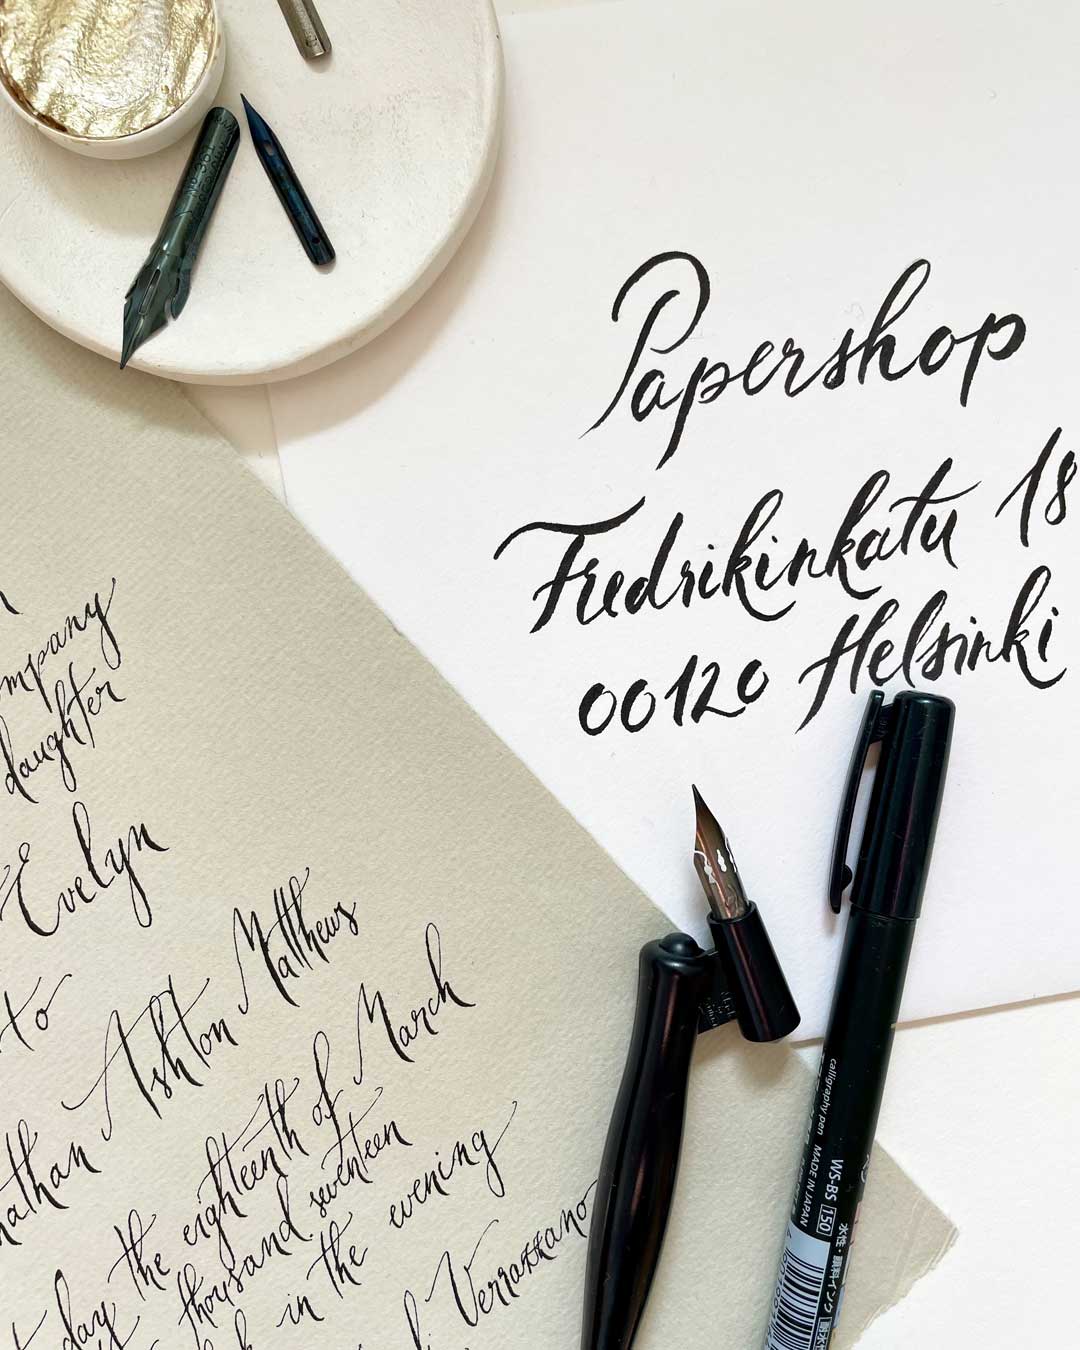 Papershop
Fredrikinkatu 18
00120 Helsinki
mpany
daughter
Evelyn
to
Ashton Matthews
of March
day the eighteenth
thousand seventeen
in the evening
Verrazzano
No 361
calligraphy pen MADE IN JAPAN
WS-BS 150 水性・顔料インク